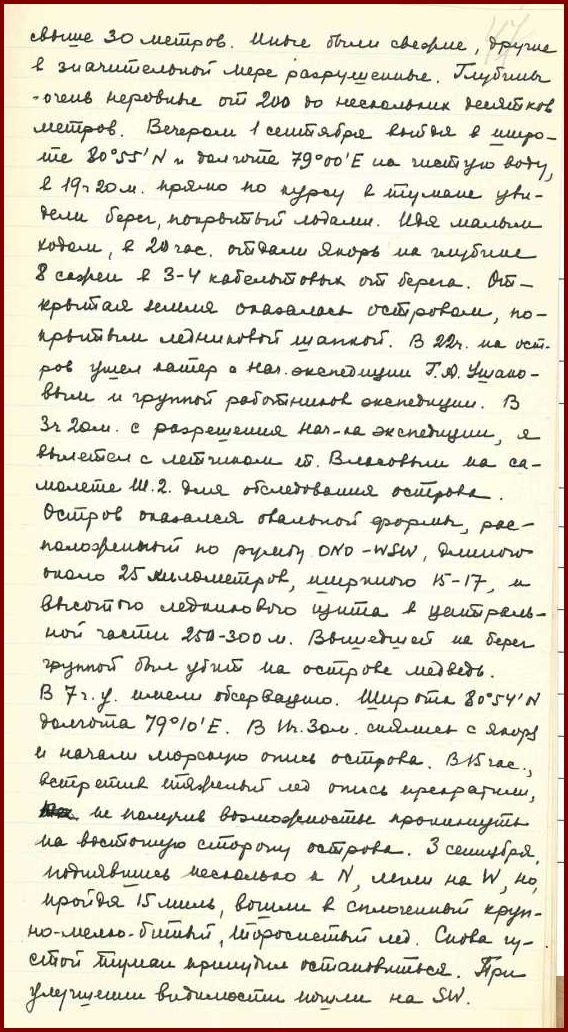 47
свыше 30 метров. Иные были свежие, другие
в значительной мере разрушенные. Глубины
-очень неровные от 200 до нескольких десятков
метров. Вечером 1 сентября выйдя в широ-
те 80°55'N и долготе 79°00'E на чистую воду,
в 19ч 20м. прямо по курсу в тумане уви-
дели берег, покрытый льдами. Идя малым
ходом, в 20 час. отдали якорь на глубине
8 сажен в 3-4 кабельтовых от берега. От-
крытая земля оказалась островом, по-
крытым ледниковой шапкой. В 22ч. на ост-
ров ушел катер с нач. экспедиции Г.А. Ушако-
вым и группой работников экспедиции. В
3ч 20м. с разрешения нач-ка экспедиции, я
вылетел с летчиком т. Власовым на са-
молете Ш.2. для обследования острова.
Остров оказался овальной формы, рас-
положенный по румбу ONO-WSW, длиною
около 25 километров, шириною 15-17, и
высотою ледникового щита в централь-
ной части 250-300 м. Вышедшей на берег
группой был убит на острове медведь.
В 7 ч. у. имели обсервацию. Широта 80°54'N
долгота 79°10'E. В 11ч. 30м. снялись с якоря
и начали морскую опись острова. В 15 час.,
встретив тяжелый лед опись прекратили,
не получив возможности проникнуть
на восточную сторону острова. 3 сентября,
поднявшись несколько к N, легли на W, но,
пройдя 15 миль, вошли в сплоченный круп-
но-мелко-битый, торосистый лед. Снова гу-
стой туман принудил остановиться. При
улучшении видимости пошли на SW.